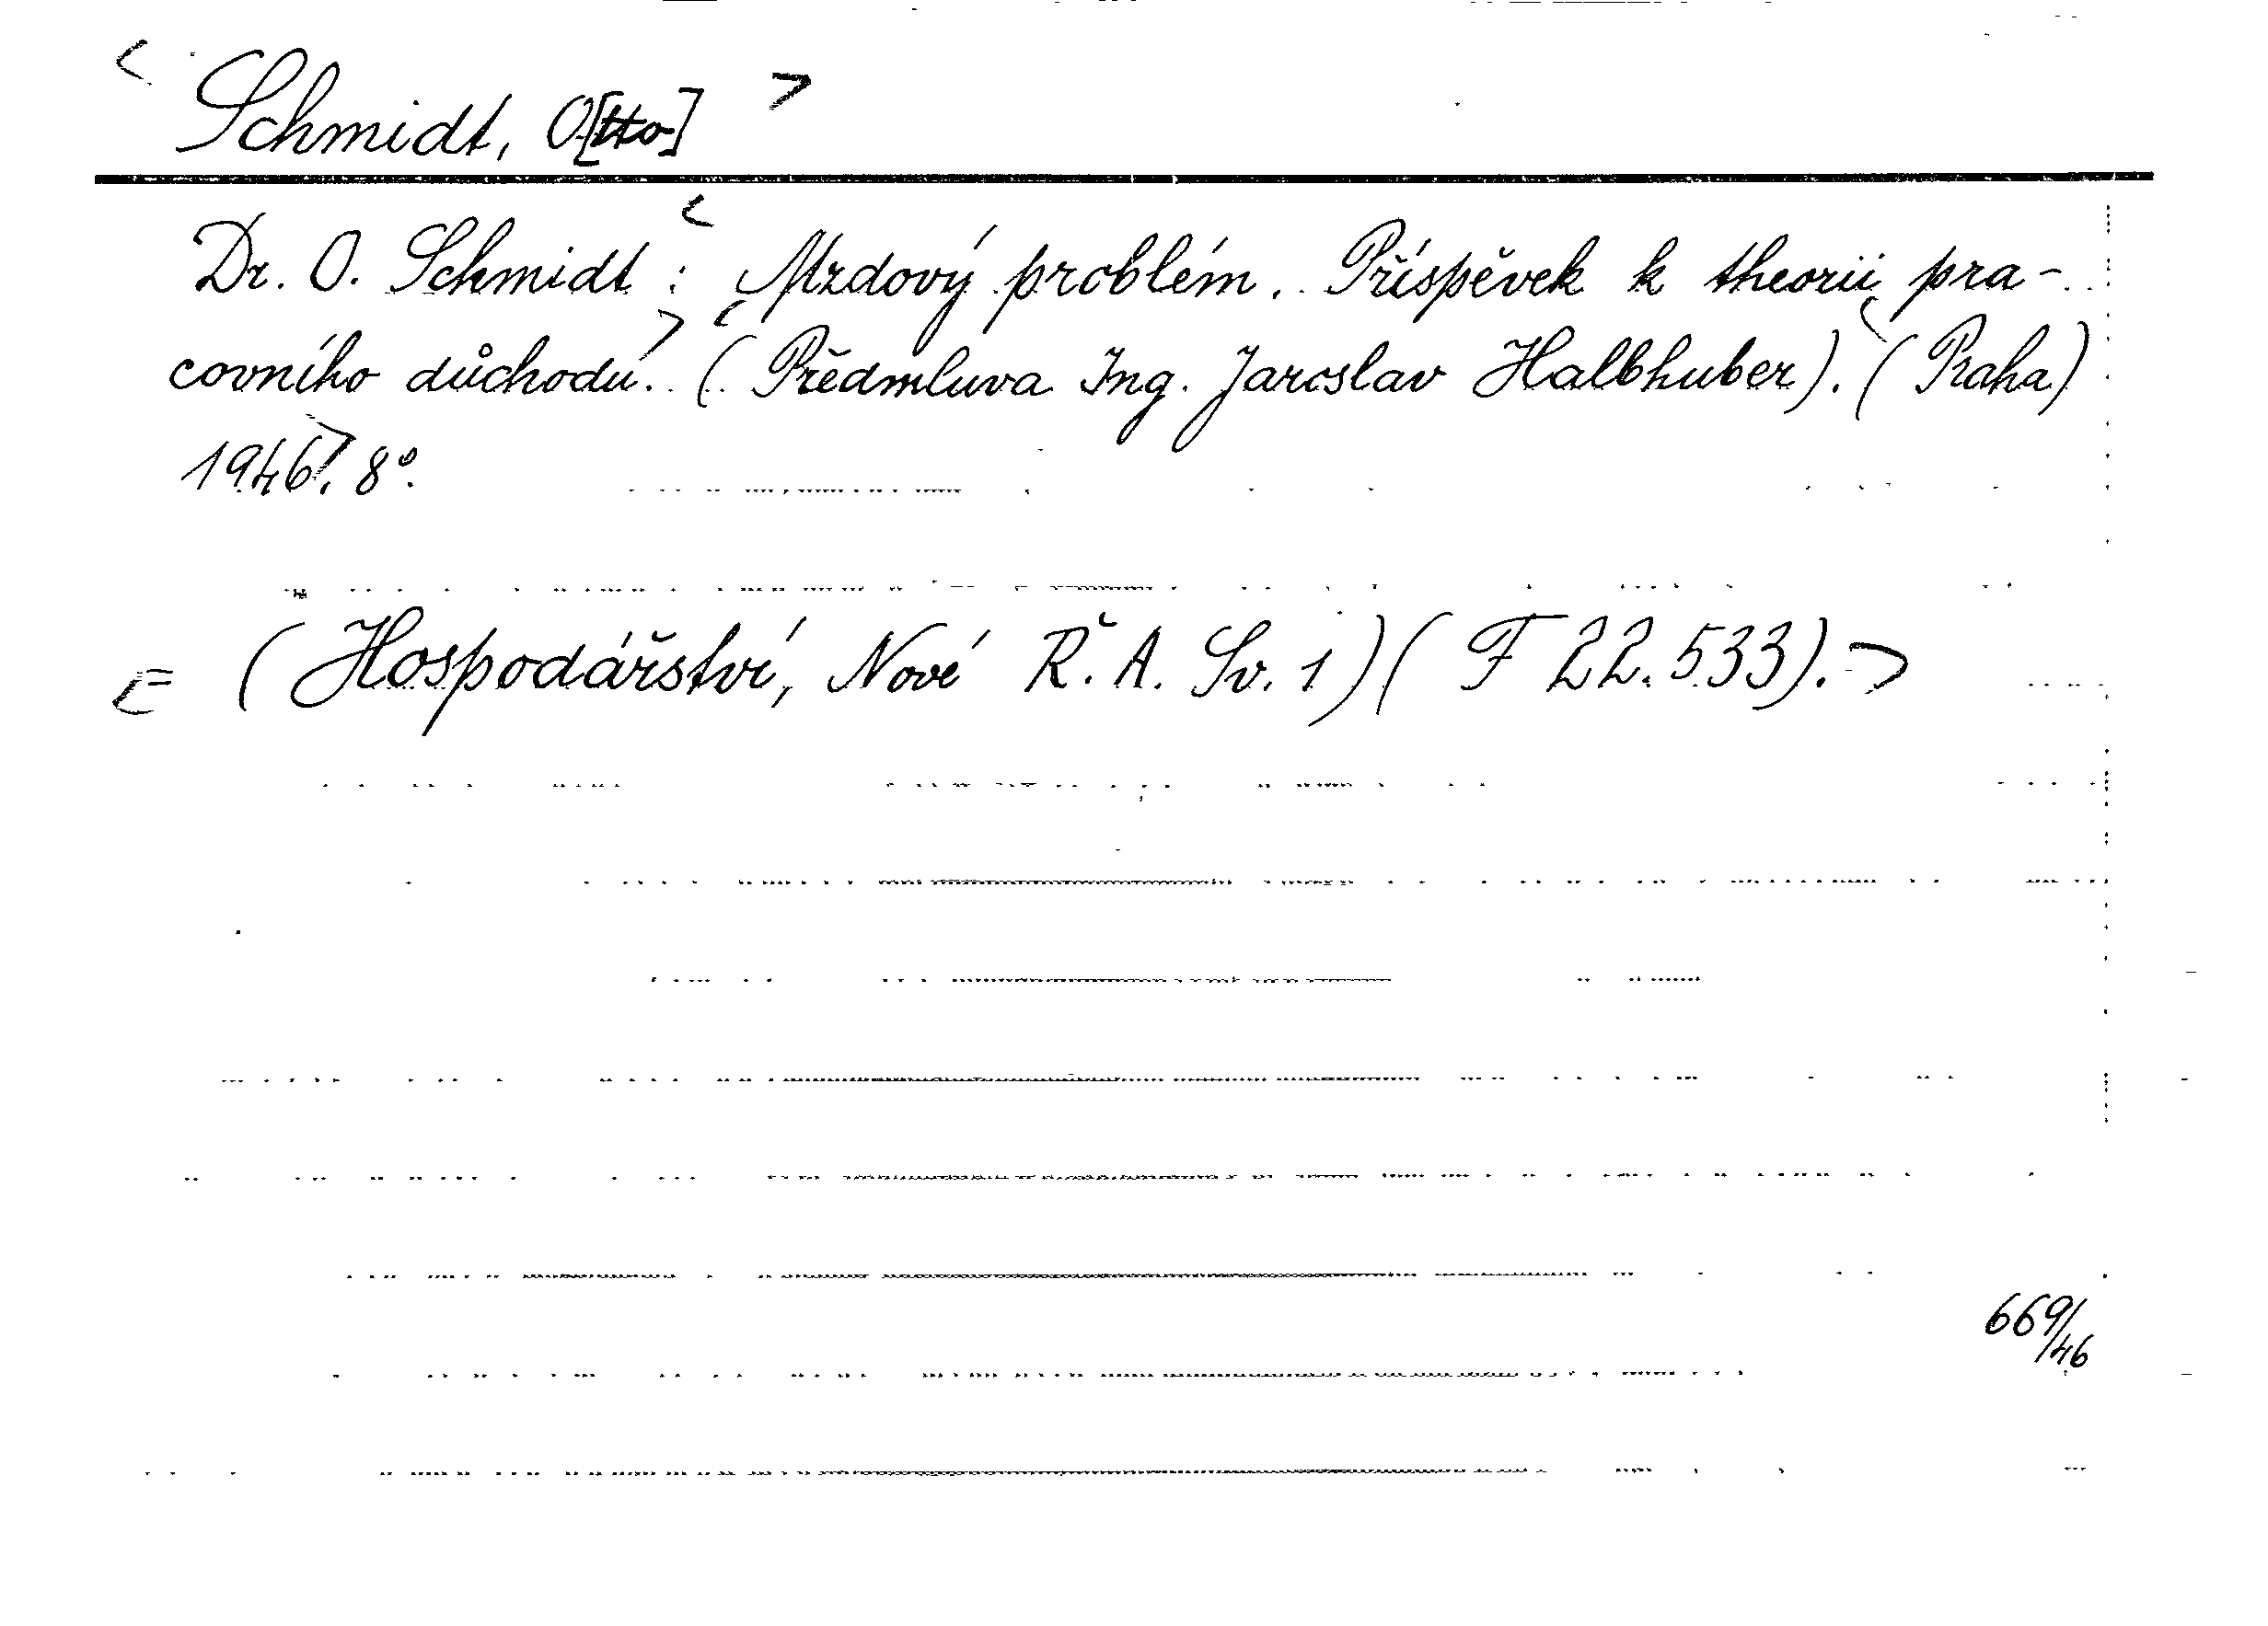 < Schmidt, O[tto] >
Dr. O. Schmidt : < Mzdový problém. Příspěvek k theorii pra-
covního důchodu. > < ( Předmluva Ing. Jaroslav Halbhuber). < (Praha)
1946. > 8°.
(Hospodářství, Nové Ř. A. Sv. 1) ( F 22.533). >
669/46